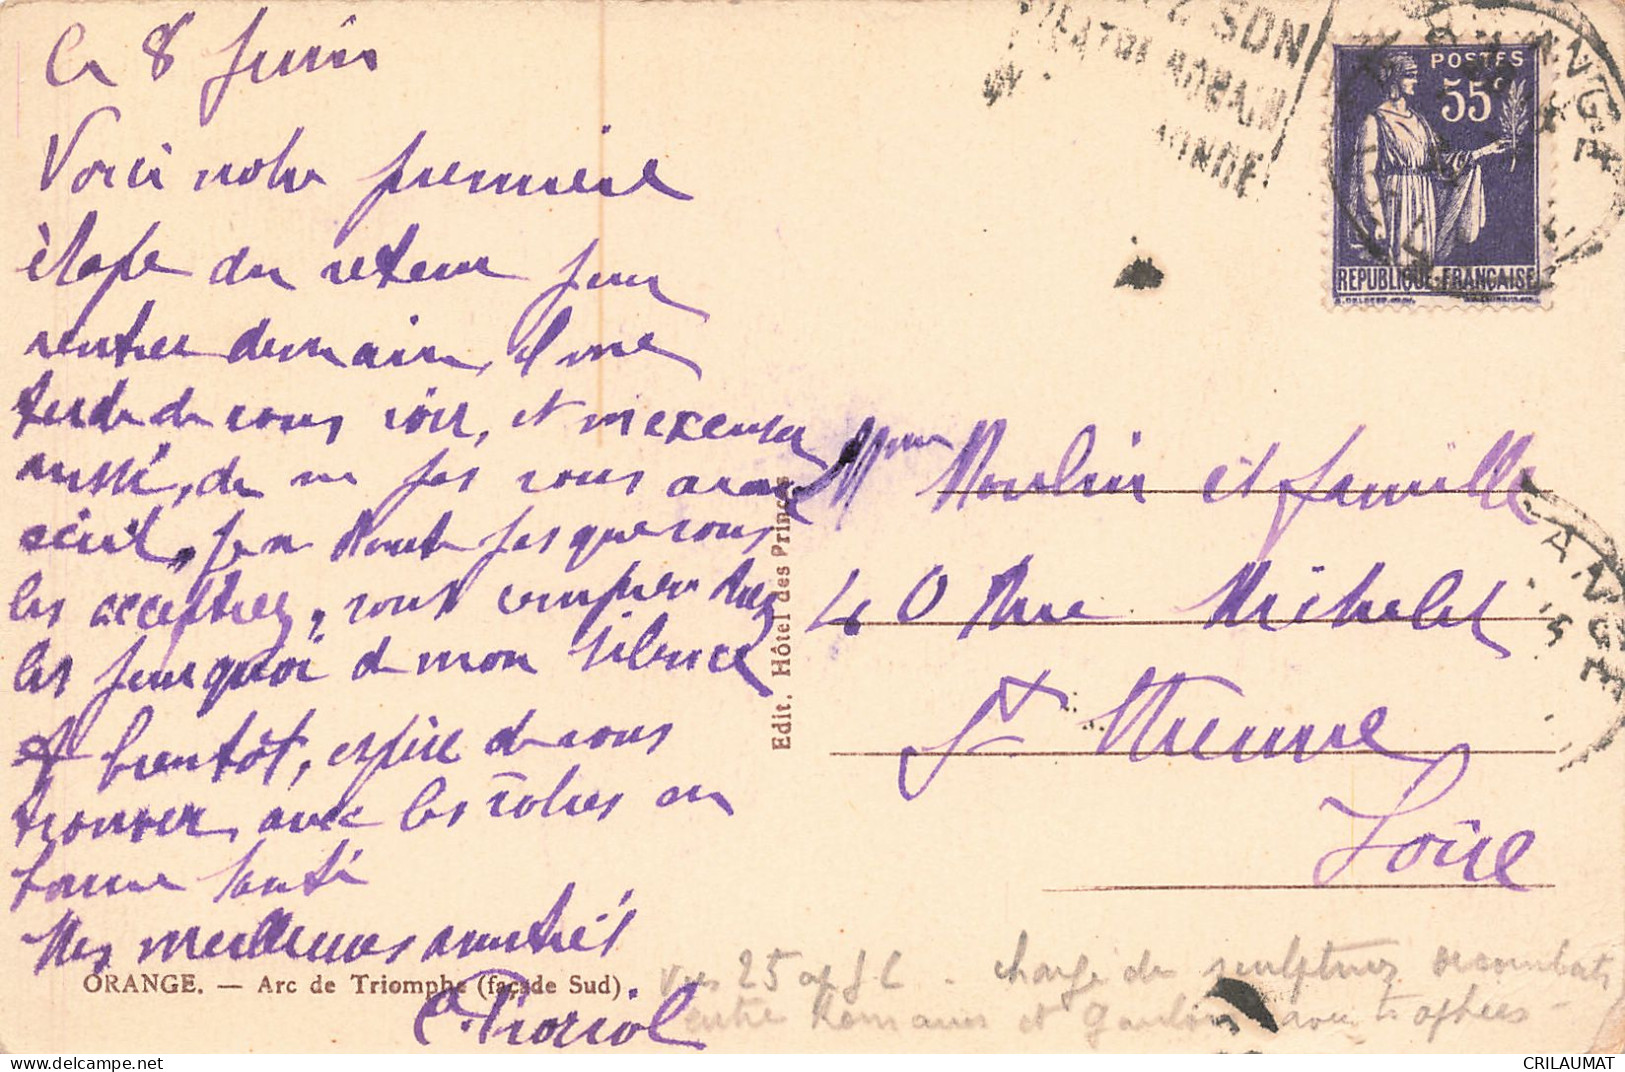 Le 8 Juin
Voici notre première
étape du retour pour
rentrer demain, il me
tarde de vous voir, et m'excuser
aussi, de ne pas vous avoir
écrit, je ne doute pas que vous
les accepterez, vous comprendrez
les pourquoi de mon silence
A bientôt, espère de vous
trouver, avec les vôtres en
bonne santé
Mes meilleures amitiés
ORANGE. — Arc de Triomphe (façade Sud).
Edit. Hôtel des Princes
SON
THEATRE ROMAIN
POSTES
55c
REPUBLIQUE FRANÇAISE
ORANGE
Mme Moulin et famille
40 Rue Michelet
St Etienne
Loire
ORANGE
25 av J C - chargé de sculptures combats
entre Romains et Gaulois avec trophées -
CRILAUMAT